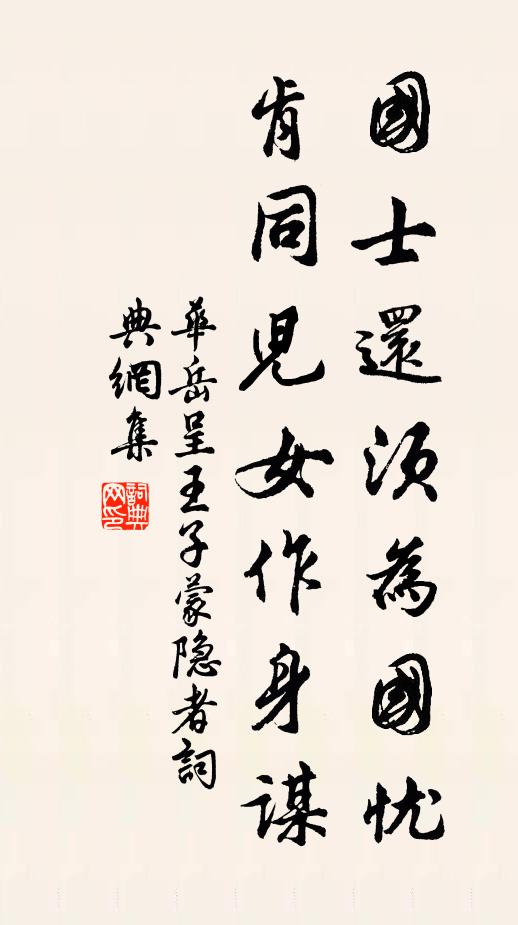 國士還須為國忧
肯同兒女作身謀
華岳呈王子蒙隐者詞
典網集
詞典网印